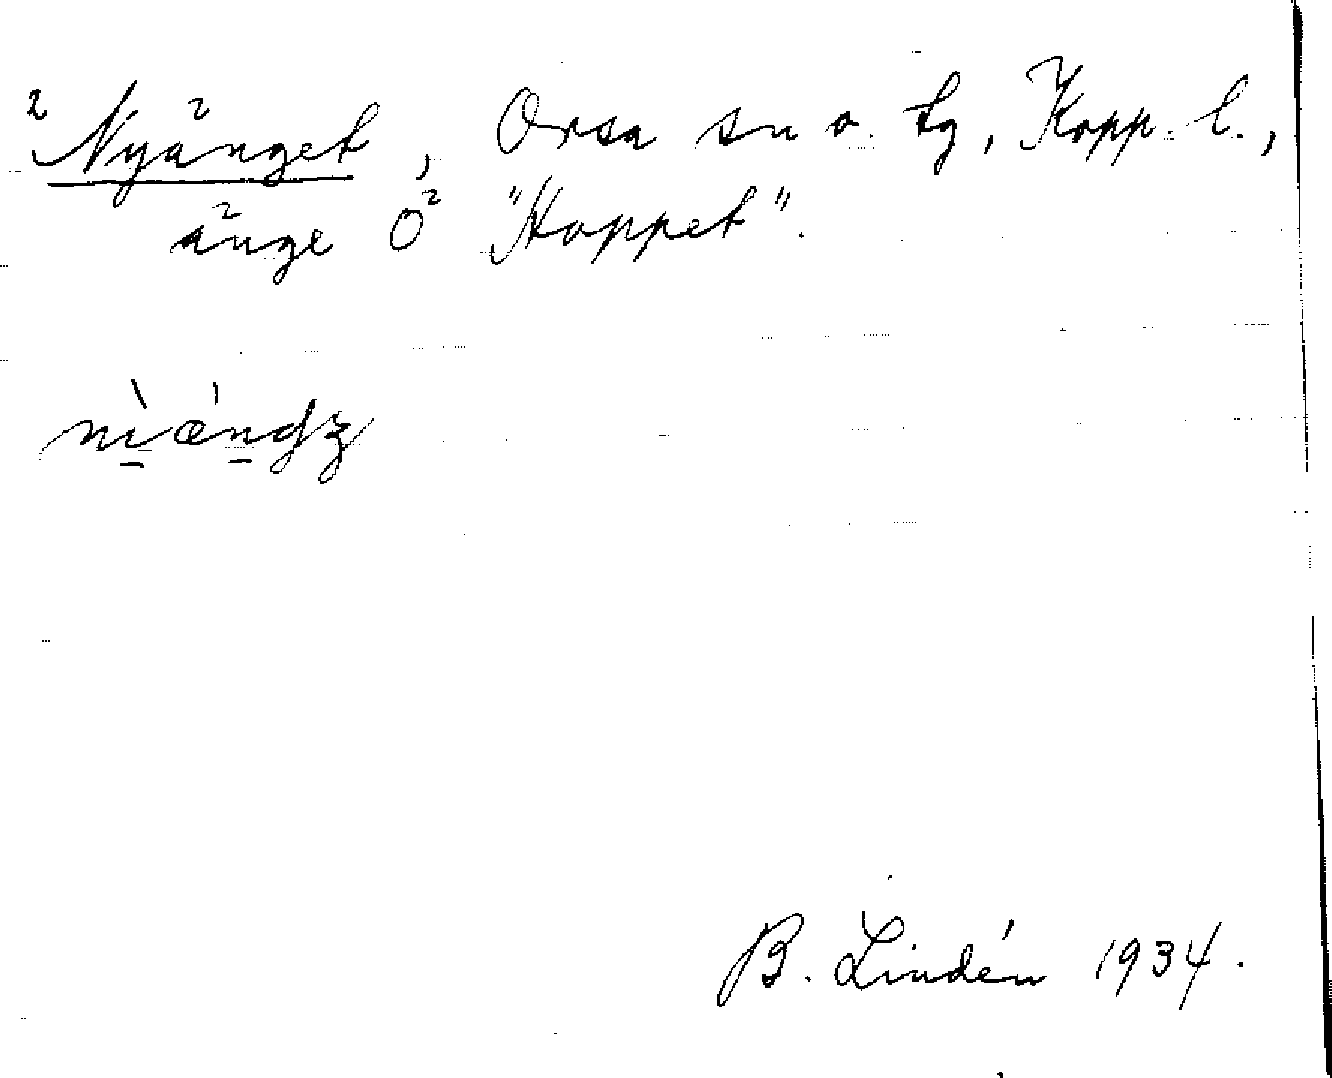 ² Nyänget, Orsa sn o. tg, Kopp. l.,
änge O² "Hoppet".
nì̠æ̀n̠dʒ
B. Lindén 1934.